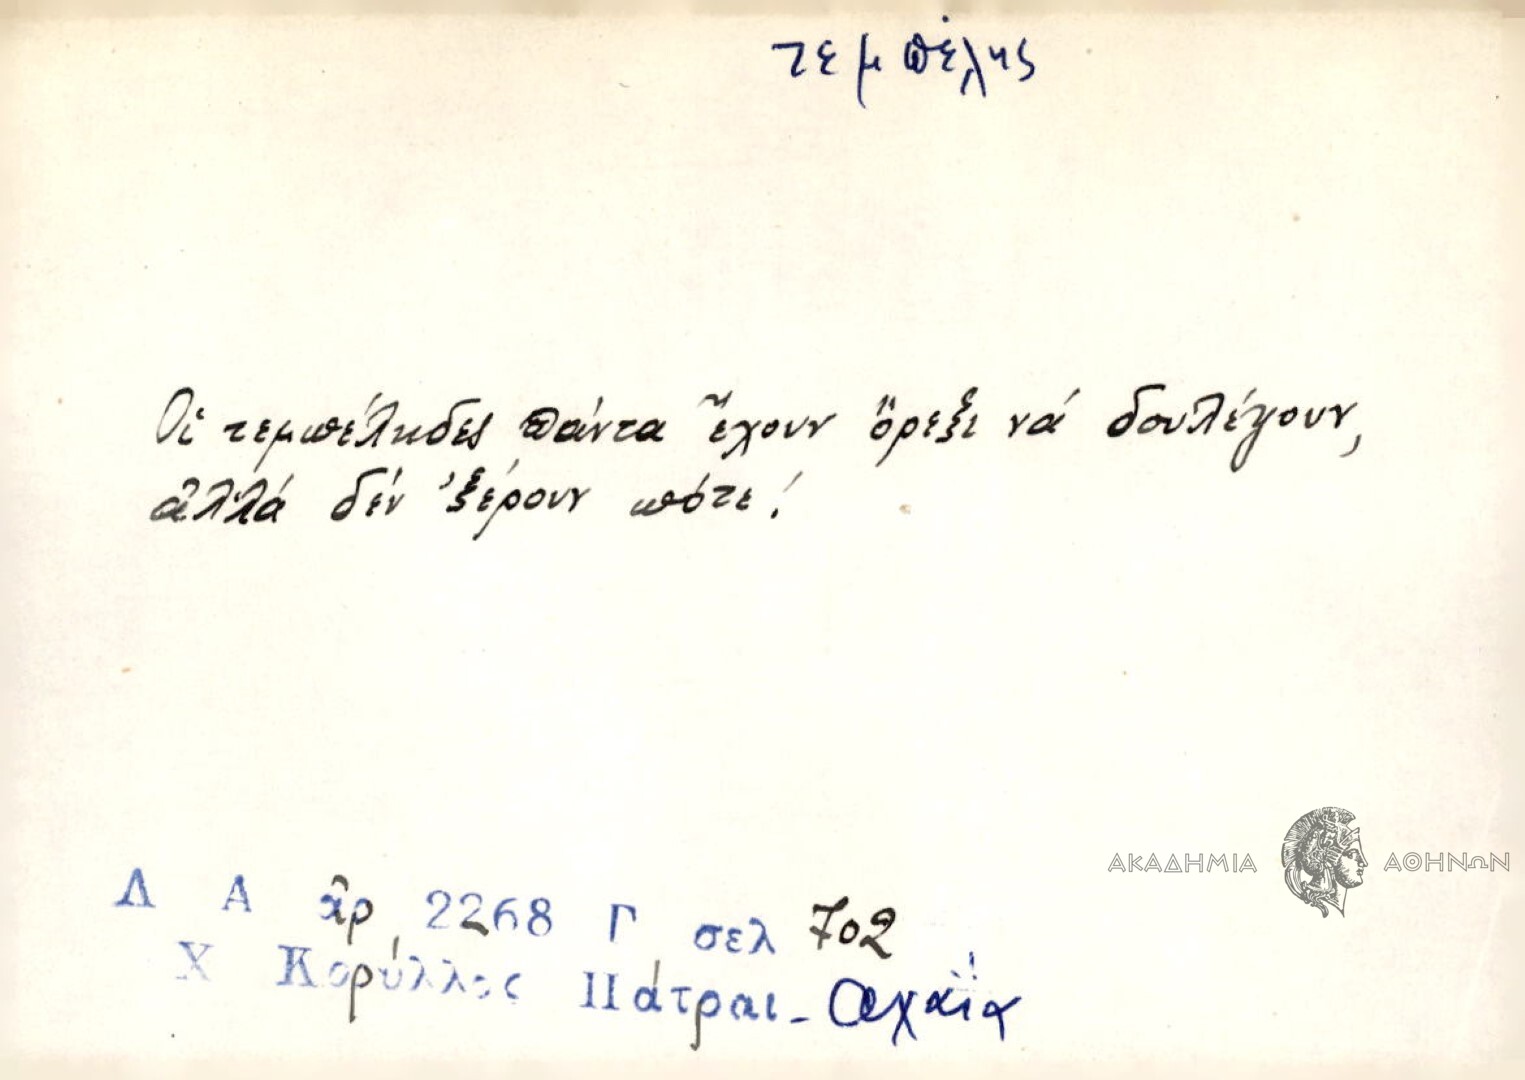 τεμπέλης
Οἱ τεμπέληδες πάντα ἔχουν ὄρεξι νά δουλέγουν,
ἀλλά δέν 'ξέρουν πότε!
ΑΚΑΔΗΜΙΑ ΑΘΗΝΩΝ
Λ Α ἀρ 2268 Γ σελ 702
Χ Κορύλλος Πάτραι - Ἀχαΐα